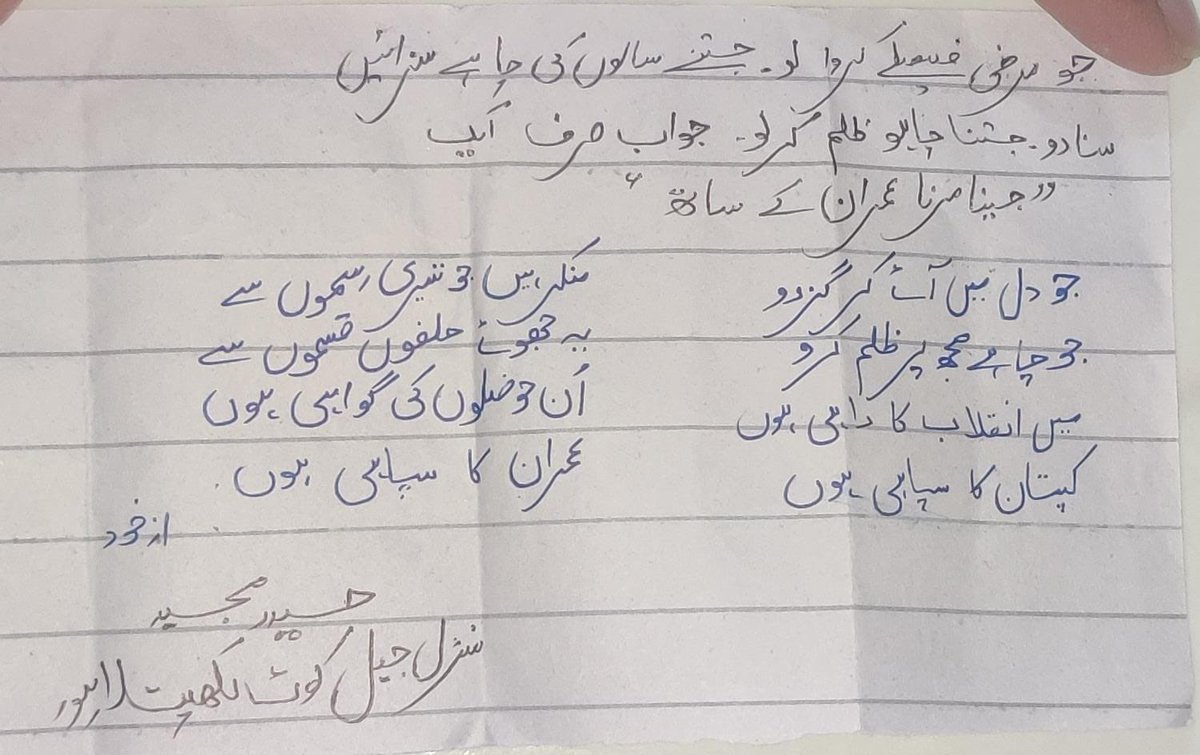 جو مرضی فیصلے کروا لو۔ جتنے سالوں کی چاہے سزائیں
سنا دو۔ جتنا چاہو ظلم کر لو۔ جواب صرف ایک
"جینا مرنا عمران کے ساتھ"
جو دل میں آئے کر گزرو
جو چاہے مجھ پر ظلم کرو
میں انقلاب کا داہی ہوں
کپتان کا سپاہی ہوں
منکر ہیں جو تیری رسموں سے
یہ جھوٹے حلفوں قسموں سے
اُن حوصلوں کی گواہی ہوں
عمران کا سپاہی ہوں۔
از خود
حیدر مجید
سنٹرل جیل کوٹ لکھپت لاہور